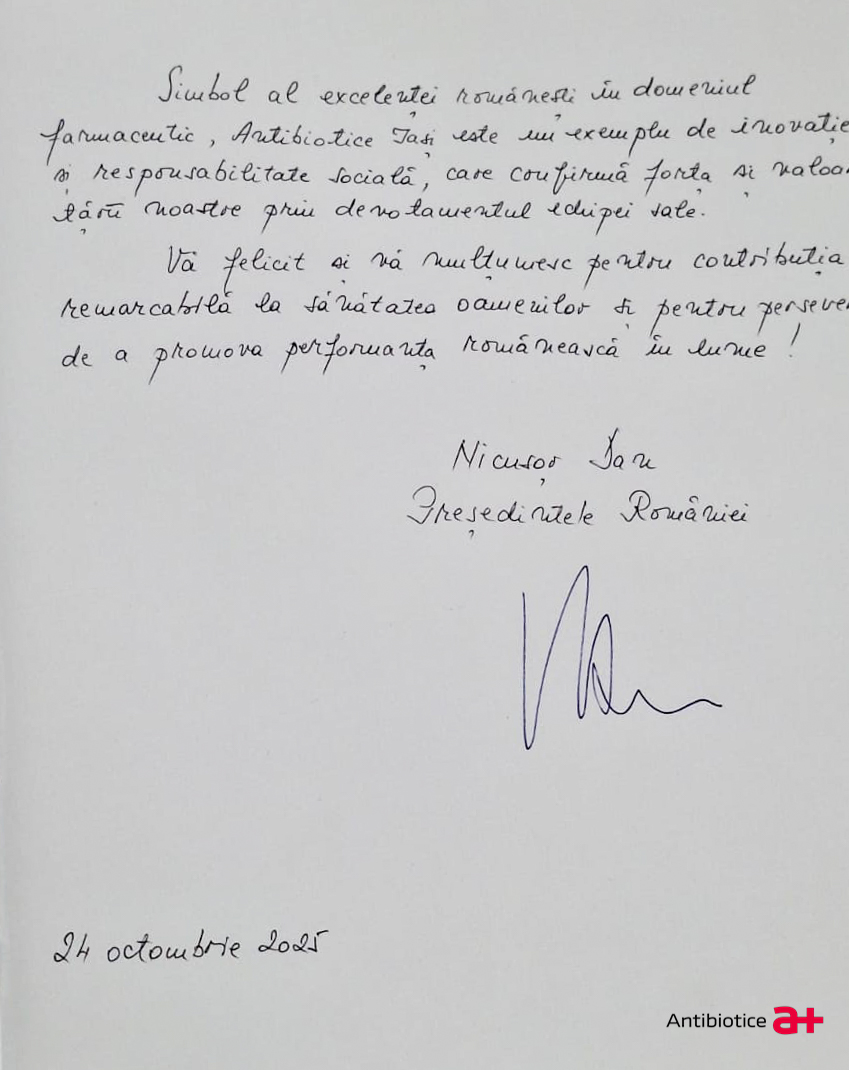 Simbol al excelenței românești în domeniul
farmaceutic, Antibiotice Iași este un exemplu de inovație
și responsabilitate socială, care confirmă forța și valoa
țării noastre prin devotamentul echipei sale.
Vă felicit și vă mulțumesc pentru contribuția
remarcabilă la sănătatea oamenilor și pentru perseve
de a promova performanța românească în lume!
Nicușor Dan
Președintele României
24 octombrie 2025
Antibiotice a+